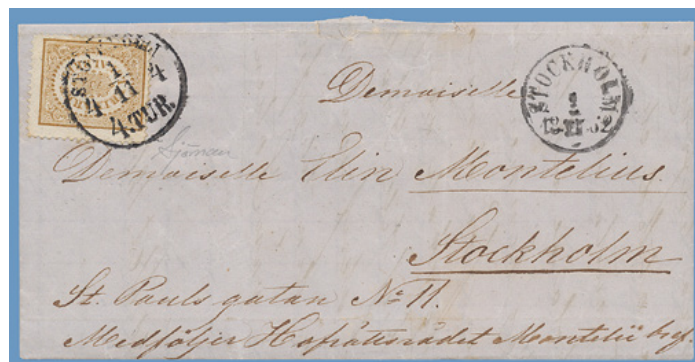 4 TUR.
STOCKHOLM
Demoiselle
Demoiselle Elin Montelius.
Stockholm
St. Pauls gatan No 11.
Medföljer Hofrättsrådet Montelii bref